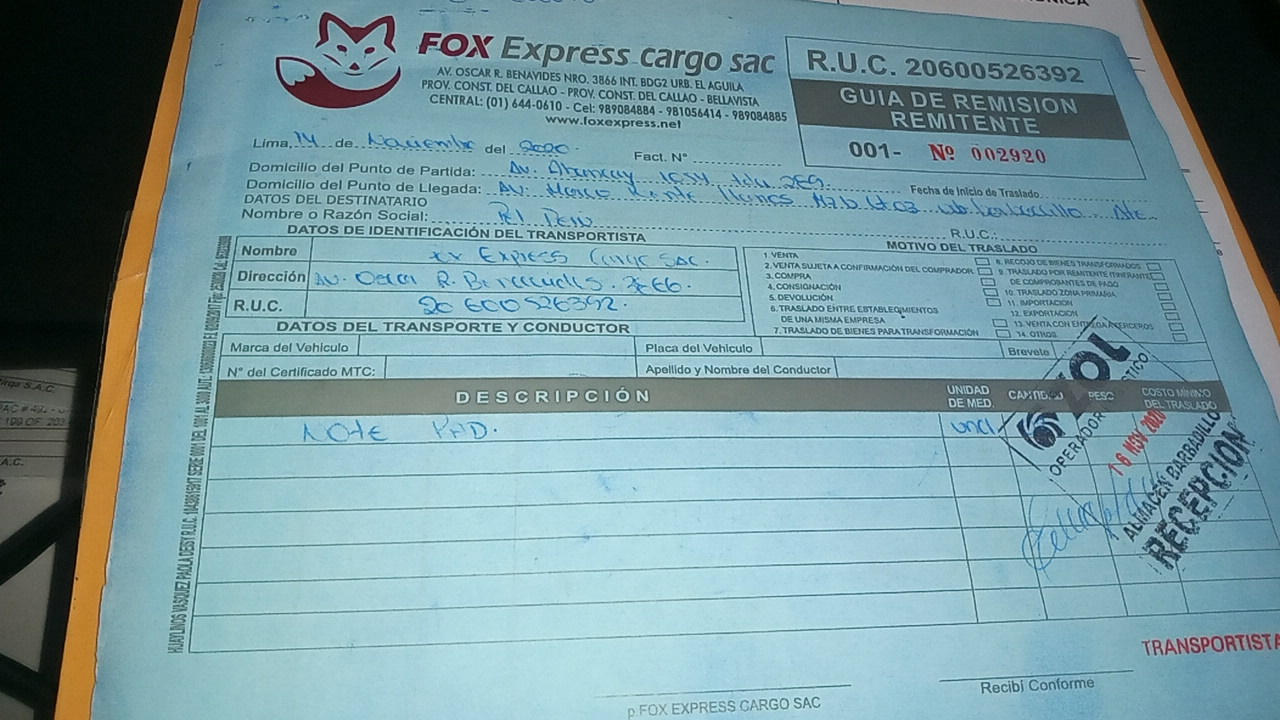 FOX Express cargo sac
AV. OSCAR R. BENAVIDES NRO. 3866 INT. BDG2 URB. EL AGUILA
PROV. CONST. DEL CALLAO - PROV. CONST. DEL CALLAO - BELLAVISTA
CENTRAL: (01) 644-0610 - Cel: 989084884 - 981056414 - 989084885
www.foxexpress.net
R.U.C. 20600526392
GUIA DE REMISION
REMITENTE
001- Nº 002920
Lima, 14 de Noviembre del 2020. Fact. N°
Domicilio del Punto de Partida: Av. Abancay 269. Fecha de Inicio de Traslado
Domicilio del Punto de Llegada: Av. Marco Llanos Mz b Lt 03 Ate
DATOS DEL DESTINATARIO
Nombre o Razón Social: R.U.C.:
DATOS DE IDENTIFICACIÓN DEL TRANSPORTISTA
Nombre xx Express Cargo SAC.
Dirección Av. Oscar R. Benavides. 3866.
R.U.C. 20600526392.
MOTIVO DEL TRASLADO
1. VENTA
2. VENTA SUJETA A CONFIRMACIÓN DEL COMPRADOR
3. COMPRA
4. CONSIGNACIÓN
5. DEVOLUCIÓN
6. TRASLADO ENTRE ESTABLECIMIENTOS
DE UNA MISMA EMPRESA
7. TRASLADO DE BIENES PARA TRANSFORMACIÓN
8. RECOJO DE BIENES TRANSFORMADOS
9. TRASLADO POR REMITENTE ITINERANTE
DE COMPROBANTES DE PAGO
10. TRASLADO ZONA PRIMARIA
11. IMPORTACIÓN
12. EXPORTACIÓN
13. VENTA CON ENTREGA A TERCEROS
14. OTROS
DATOS DEL TRANSPORTE Y CONDUCTOR
Marca del Vehiculo Placa del Vehículo Brevete
N° del Certificado MTC: Apellido y Nombre del Conductor
DESCRIPCIÓN UNIDAD DE MED. CANTIDAD PESO COSTO MÍNIMO DEL TRASLADO
NOTE PAD. und
OPERADOR
16 NOV 2020
ALMACÉN BARBADILLO
RECEPCION
TRANSPORTISTA
p.FOX EXPRESS CARGO SAC
Recibí Conforme